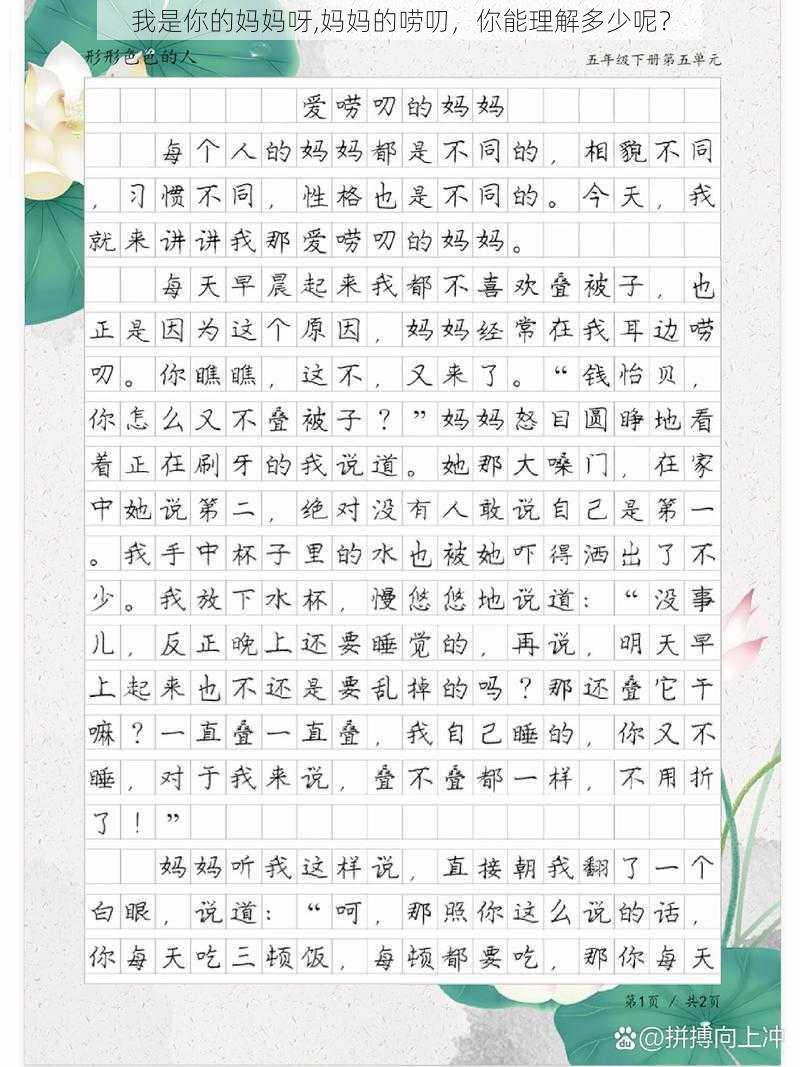 我是你的妈妈呀,妈妈的唠叨，你能理解多少呢?
形形色色的人
五年级下册第五单元
爱唠叨的妈妈
每个人的妈妈都是不同的，相貌不同
，习惯不同，性格也是不同的。今天，我
就来讲讲我那爱唠叨的妈妈。
每天早晨起来我都不喜欢叠被子，也
正是因为这个原因，妈妈经常在我耳边唠
叨。你瞧瞧，这不，又来了。“钱怡贝，
你怎么又不叠被子？”妈妈怒目圆睁地看
着正在刷牙的我说道。她那大嗓门，在家
中她说第二，绝对没有人敢说自己是第一
。我手中杯子里的水也被她吓得洒出了不
少。我放下水杯，慢悠悠地说道：“没事
儿，反正晚上还要睡觉的，再说，明天早
上起来也不还是要乱掉的吗？那还叠它干
嘛？一直叠一直叠，我自己睡的，你又不
睡，对于我来说，叠不叠都一样，不用折
了！”
妈妈听我这样说，直接朝我翻了一个
白眼，说道：“呵，那照你这么说的话，
你每天吃三顿饭，每顿都要吃，那你每天
第1页 / 共2页
Bai du @拼搏向上冲